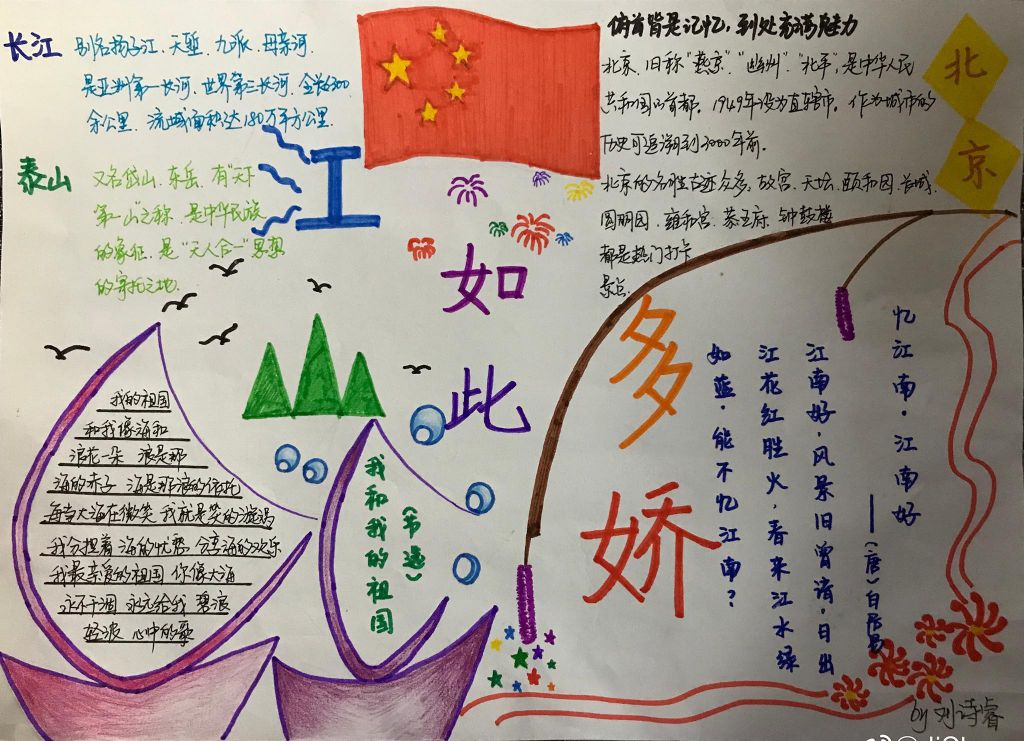 长江
别名扬子江、天堑、九派、母亲河。
是亚洲第一长河,世界第三长河,全长6300
余公里,流域面积达180万平方公里。
泰山
又名岱山、东岳、有“天下
第一山”之称,是中华民族
的象征,是“天人合一”思想
的寄托之地。
江
如
此
多
娇
俯首皆是记忆,到处充满魅力
北京,旧称“燕京”“幽州”“北平”,是中华人民
共和国的首都。1949年设为直辖市。作为城市的
历史可追溯到3000年前。
北京的名胜古迹众多,故宫、天坛、颐和园、长城、
圆明园、雍和宫、恭王府、钟鼓楼
都是热门打卡
景点。
北
京
忆江南·江南好
——(唐)白居易
江南好,风景旧曾谙,日出
江花红胜火,春来江水绿
如蓝,能不忆江南?
我的祖国
和我像海和
浪花一朵 浪是那
海的赤子 海是那浪的依托
每当大海在微笑 我就是笑的漩涡
我分担着海的忧愁 分享海的欢乐
我最亲爱的祖国 你像大海
永不干涸 永远给我 碧浪
轻波 心中的歌
我和我的祖国
(节选)
by 刘诗睿